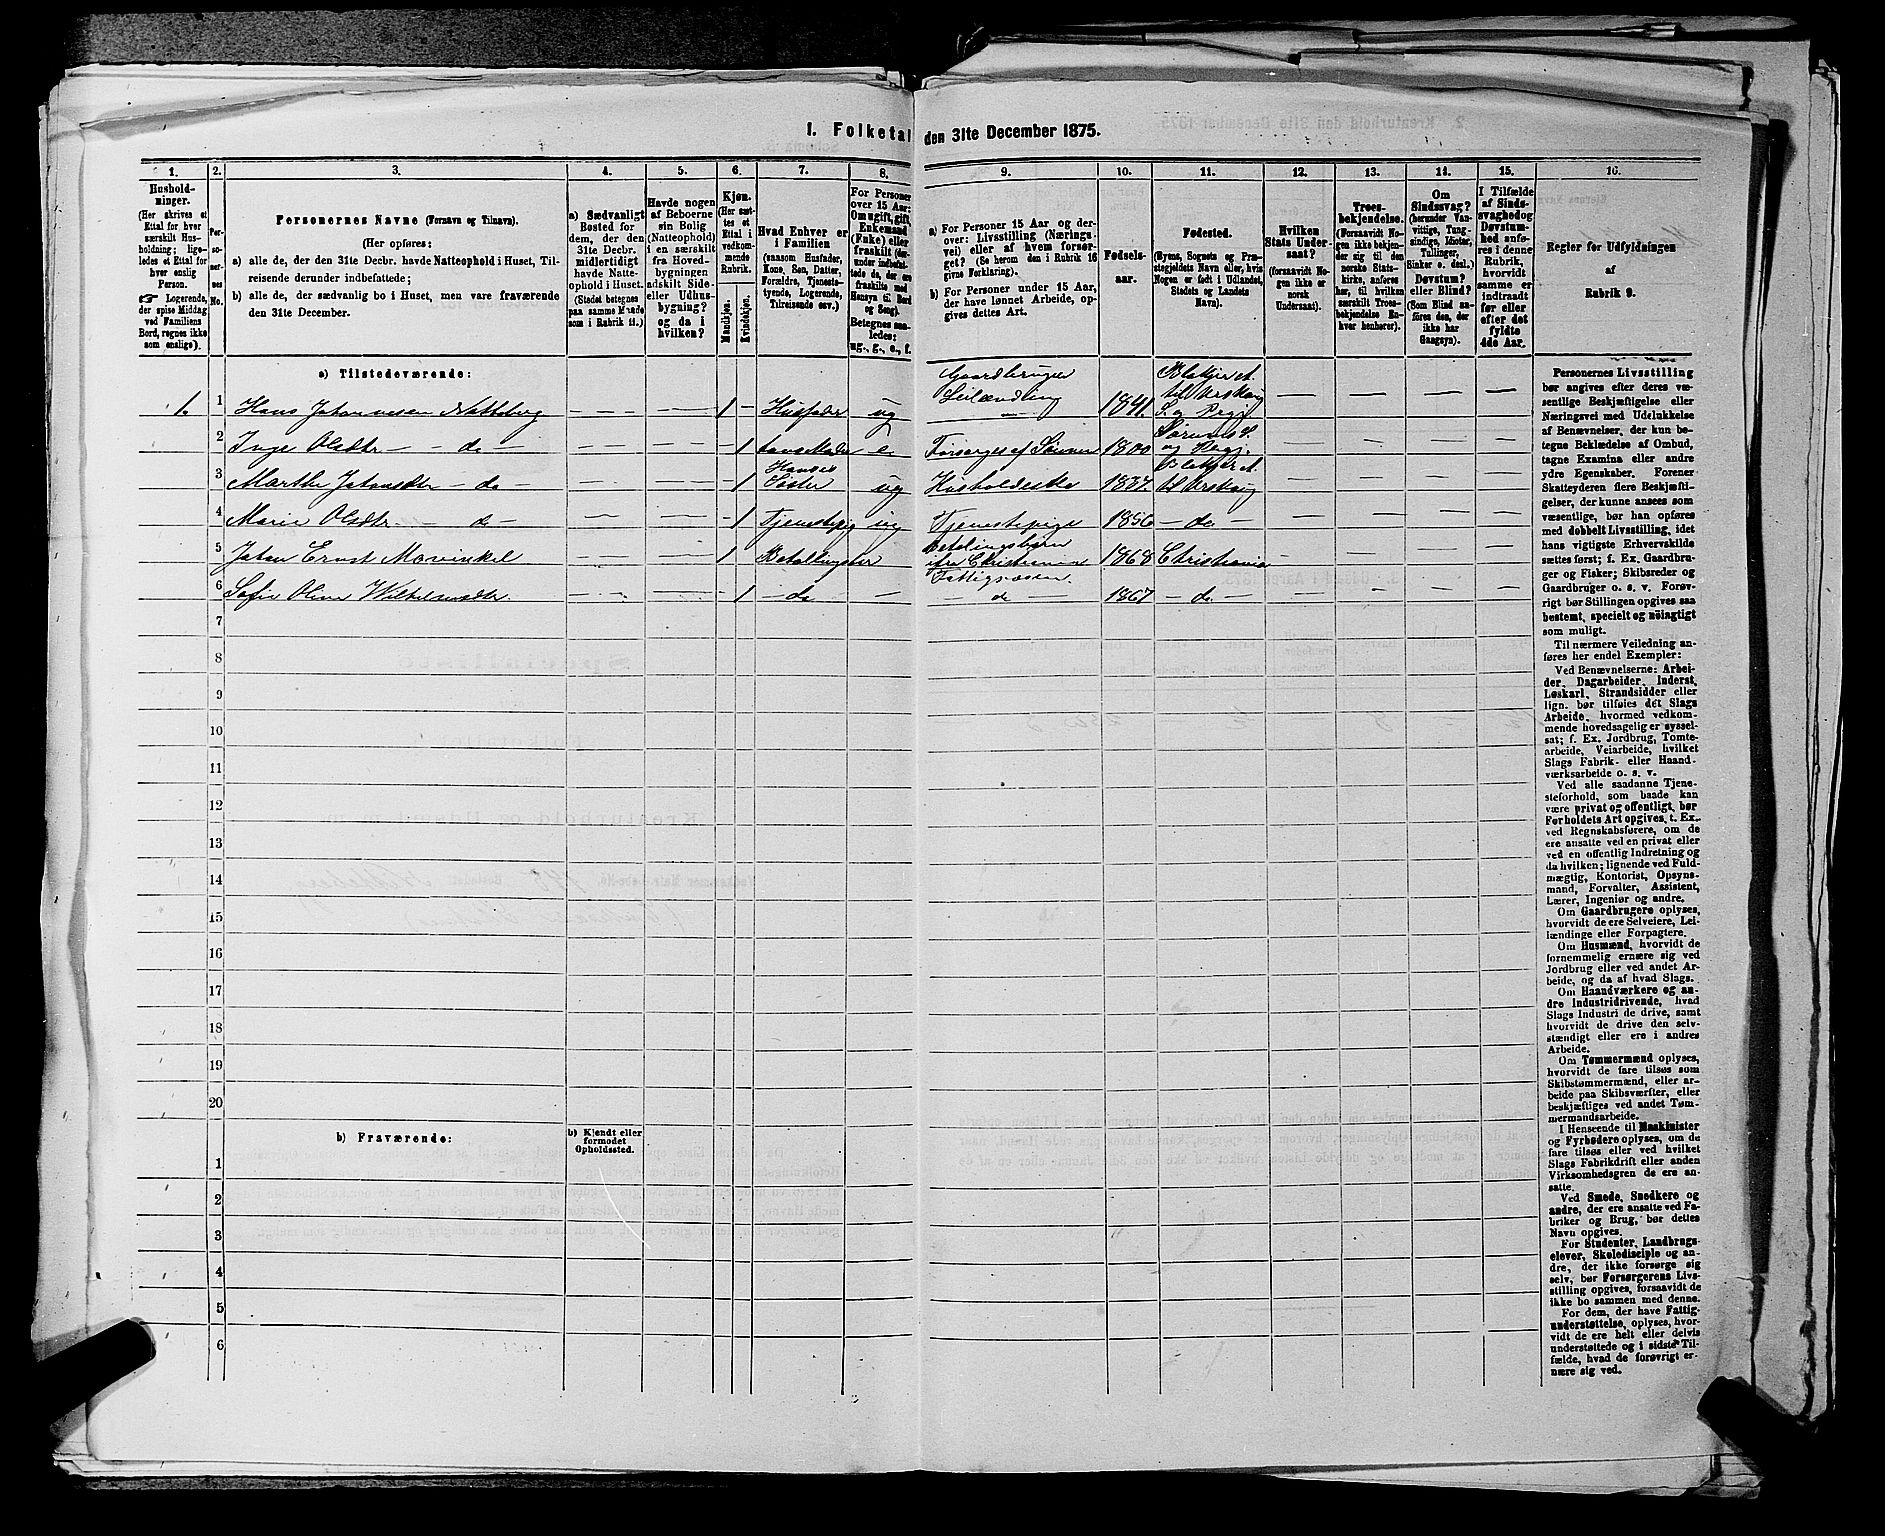 1. Folketal den 31te December 1875.
1.
Hushold-
ninger.
(Her skrives et
Ettal for hver
særskilt Hus-
holdning; lige-
ledes et Ettal for
hver enslig
Person.
Logerende,
der spise Middag
ved Familiens
Bord, regnes ikke
som enslige).
2.
Per-
so-
ner-
nes
No.
3.
Personernes Navne (Fornavn og Tilnavn).
(Her opføres:
a) alle de, der den 31te Decbr. havde Natteophold i Huset, Til-
reisende derunder indbefattede;
b) alle de, der sædvanlig bo i Huset, men vare fraværende
den 31te December.
4.
a) Sædvanligt
Bosted for
dem, der den
31te Decbr.
midlertidigt
havde Natte-
ophold i Huset.
(Stedet betegnes
paa samme Maade
som i Rubrik 11.)
5.
Havde nogen
af Beboerne
sin Bolig
(Natteophold)
i en særskilt
fra Hoved-
bygningen
adskilt Side-
eller Udhus-
bygning?
og da i
hvilken?
6.
Kjøn.
(Her sæt-
tes et
Ettal i
vedkom-
mende
Rubrik.
Mandkjøn.
Kvindekjøn.
7.
Hvad Enhver er
i Familien
(saasom Husfader,
Kone, Søn, Datter,
Forældre, Tjeneste-
tyende, Logerende,
Tilreisende osv.)
8.
For Personer
over 15 Aar:
Om ugift, gift,
Enkemand
(Enke) eller
fraskilt (der-
under indbefat-
tede de, der ere
fraskilte med
Hensyn til Bord
og Seng).
Betegnes saa-
ledes:
ug., g., e., f.
9.
a) For Personer 15 Aar og der-
over: Livsstilling (Nærings-
vei) eller af hvem forsør-
get? (Se herom den i Rubrik 16
givne Forklaring).
b) For Personer under 15 Aar,
der have lønnet Arbeide, op-
gives dettes Art.
10.
Fødsels-
aar.
11.
Fødested.
(Byens, Sognets og Præ-
stegjeldets Navn eller, hvis
Nogen er født i Udlandet,
Stedets og Landets
Navn).
12.
Hvilken
Stats Under-
saat?
(forsaavidt No-
gen ikke er
norsk
Undersaat).
13.
Troes-
bekjendelse.
(Forsaavidt No-
gen ikke bekjen-
der sig til den
norske Stats-
kirke, anføres
her, til hvilken
særskilt Troes-
bekjendelse En-
hver henhører).
14.
Om
Sindssvag?
(herunder Van-
vittige, Tung-
sindige, Idioter,
Tullinger,
Sinker o. desl.)
Døvstum?
eller Blind?
(Som Blind an-
føres den, der
ikke har
Gangsyn).
15.
I Tilfælde
af Sinds-
svaghed og
Døvstum-
hed anfø-
res i denne
Rubrik,
hvorvidt
samme er
indtraadt
før eller
efter det
fyldte
4de Aar.
16.
Regler for Udfyldningen
af
Rubrik 9.
a) Tilstedeværende:
1. 1 Hans Johannesen Natteberg — — 1 — Husfader ug Gaardbruger Leilænding 1841. Blakjer A. til Urskoug S. og Pregj. — — — —
2 Inge Olsdtr — do — — — — 1 hans Moder e Forsørges af Sønnen 1800 Sørums S. og Pregj. — — — —
3 Marthe Johansdtr — do — — — — 1 Hans Søster ug Husholderske 1837. Blakjer A. til Urskoug — — — —
4 Marie Olsdtr — do — — — — 1 Tjenestepig ug Tjenestepige 1856 — do — — — — —
5 Johan Ernst Mowinkel — — 1 Betalingsbar Betalingsbarn fra Christiania Fattigvæsen. 1868 Christiania — — — —
6 Sofie Oline Wilhelmsdtr. — — — 1 — do — — do — 1867 — do — — — — —
7
8
9
10
11
12
13
14
15
16
17
18
19
20
b) Fraværende:
b) Kjendt eller
formodet
Opholdssted.
1
2
3
4
5
6
Personernes Livsstilling
bør angives efter deres væ-
sentlige Beskjæftigelse eller
Næringsvei med Udelukkelse
af Benævnelser, der kun be-
tegne Beklædelse af Ombud,
tagne Examina eller andre
ydre Egenskaber. Forener
Skatteyderen flere Beskjæfti-
gelser, der kunne ansees som
væsentlige, bør han opføres
med dobbelt Livsstilling, idet
hans vigtigste Erhvervskilde
sættes først; f. Ex. Gaardbru-
ger og Fisker; Skibsreder og
Gaardbruger o. s. v. Forøv-
rigt bør Stillingen opgives saa
bestemt, specielt og nöiagtigt
som muligt.
Til nærmere Veiledning an-
føres her endel Exempler:
Ved Benævnelserne: Arbei-
der, Dagarbeider, Inderst,
Løskarl, Strandsidder eller
lign. bør tilføies det Slags
Arbeide, hvormed vedkom-
mende hovedsagelig er syssel-
sat; f. Ex. Jordbrug, Tomte-
arbeide, Veiarbeide, hvilket
Slags Fabrik- eller Haand-
værksarbeide o. s. v.
Ved alle saadanne Tjene-
steforhold, som baade kan
være privat og offentligt, bør
Forholdets Art opgives, t. Ex.
ved Regnskabsførere, om de
ere ansatte ved en privat eller
ved en offentlig Indretning og
da hvilken; lignende ved Fuld-
mægtig, Kontorist, Opsyns-
mand, Forvalter, Assistent,
Lærer, Ingeniør og andre.
Om Gaardbrugere oplyses,
hvorvidt de ere Selveiere, Lei-
lændinge eller Forpagtere.
Om Husmænd, hvorvidt de
fornemmelig ernære sig ved
Jordbrug eller ved andet Ar-
beide, og da af hvad Slags.
Om Haandværkere og an-
dre Industridrivende, hvad
Slags Industri de drive, samt
hvorvidt de drive den selv-
stændigt eller ere i andres
Arbeide.
Om Tømmermænd oplyses,
hvorvidt de fare tilsøs som
Skibstømmermænd, eller ar-
beide paa Skibsværfter, eller
beskjæftiges ved andet Tøm-
mermandsarbeide.
I Henseende til Maskinister
og Fyrbødere oplyses, om de
fare tilsøs eller ved hvilket
Slags Fabrikdrift eller anden
Virksomhedsgren de ere an-
satte.
Ved Smede, Snedkere og
andre, der ere ansatte ved Fa-
briker og Brug, bør dettes
Navn opgives.
For Studenter, Landbrugs-
elever, Skoledisciple og an-
dre, der ikke forsørge sig
selv, bør Forsørgerens Livs-
stilling opgives, forsaavidt de
ikke bo sammen med denne.
For dem, der have Fattig-
understøttelse, oplyses, hvor-
vidt de ere helt eller delvis
understøttede og i sidste Til-
fælde, hvad de forøvrigt er-
nære sig ved.